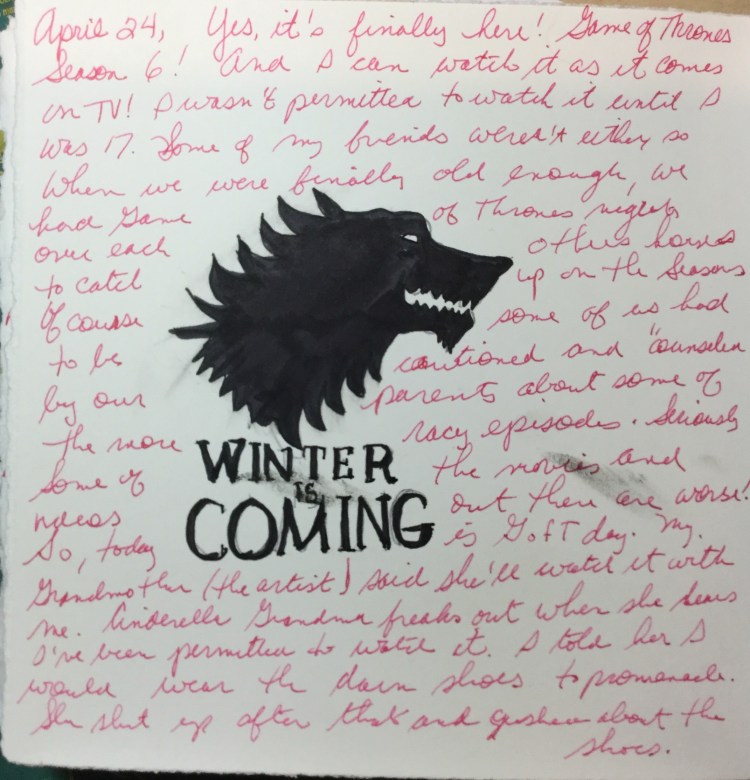 April 24, Yes, it's finally here! Game of Thrones
Season 6! And I can watch it as it comes
on TV! I wasn't permitted to watch it until I
was 17. Some of my friends weren't either so
when we were finally old enough, we
had Game of Thrones nights
over each others homes
to catch up on the seasons
Of course some of us had
to be cautioned and "counseled
by our parents about some of
the more racy episodes. Seriously
some of the movies and
videos out there are worse!
So, today is GofT day. My
Grandmother (the artist) said she'll watch it with
me. Cinderella Grandma freaks out when she hears
I've been permitted to watch it. I told her I
would wear the darn shoes to promenade.
She shut up after that and gushes about the
shoes.
WINTER
IS
COMING